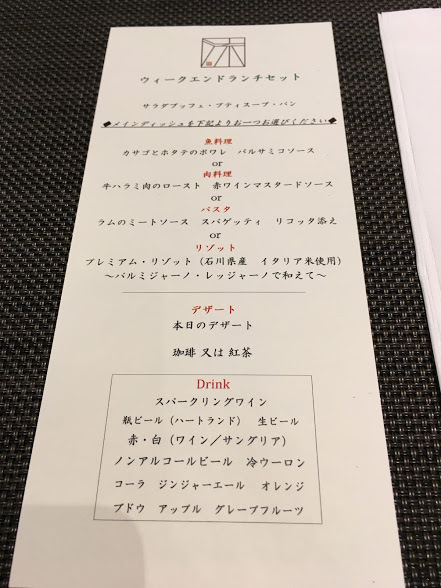 ウィークエンドランチセット
サラダブッフェ・プティスープ・パン
◆メインディッシュを下記よりお一つお選びください◆
魚料理
カサゴとホタテのポワレ　バルサミコソース
or
肉料理
牛ハラミ肉のロースト　赤ワインマスタードソース
or
パスタ
ラムのミートソース　スパゲッティ　リコッタ添え
or
リゾット
プレミアム・リゾット（石川県産　イタリア米使用）
～パルミジャーノ・レッジャーノで和えて～
デザート
本日のデザート
珈琲 又は 紅茶
Drink
スパークリングワイン
瓶ビール（ハートランド）　生ビール
赤・白（ワイン／サングリア）
ノンアルコールビール　冷ウーロン
コーラ　ジンジャーエール　オレンジ
ブドウ　アップル　グレープフルーツ